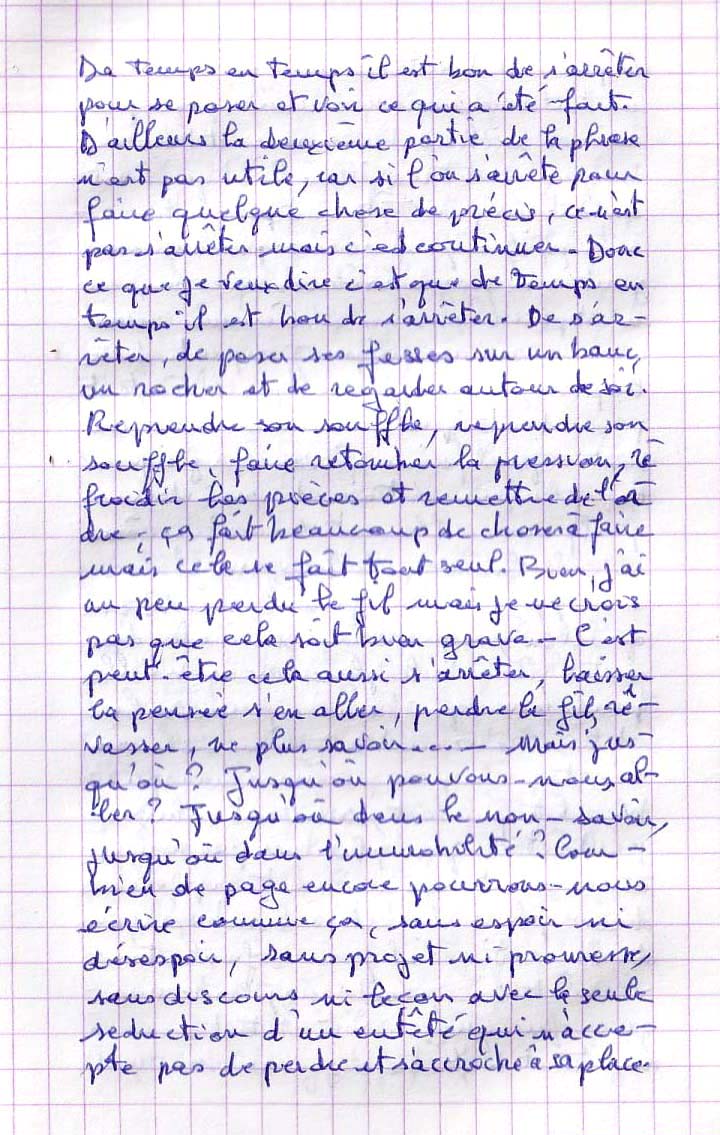 De temps en temps il est bon de s'arrêter
pour se poser et voir ce qui a été fait.
D'ailleurs la deuxième partie de la phrase
n'est pas utile, car si l'on s'arrête pour
faire quelque chose de précis, ce n'est
pas s'arrêter mais c'est continuer. Donc
ce que je veux dire c'est que de temps en
temps il est bon de s'arrêter. De s'ar-
rêter, de poser ses fesses sur un banc,
un rocher et de regarder autour de soi.
Reprendre son souffle, reprendre son
souffle, faire retomber la pression, re
froidir les pièces et remettre de l'or
dre. ça fait beaucoup de choses à faire
mais cela se fait tout seul. Bon, j'ai
un peu perdu le fil mais je ne crois
pas que cela soit bien grave - C'est
peut-être cela aussi s'arrêter, laisser
la pensée s'en aller, perdre le fil, rê-
vasser, ne plus savoir.... - Mais jus-
qu'où ? Jusqu'où pouvons-nous al-
ler ? Jusqu'où dans le non-savoir,
jusqu'où dans l'immobilité ? Com-
bien de page encore pourrons-nous
écrire comme ça, sans espoir ni
désespoir, sans projet ni promesse,
sans discours ni leçon avec la seule
séduction d'un entêté qui n'acce-
pte pas de perdre et s'accroche à sa place.